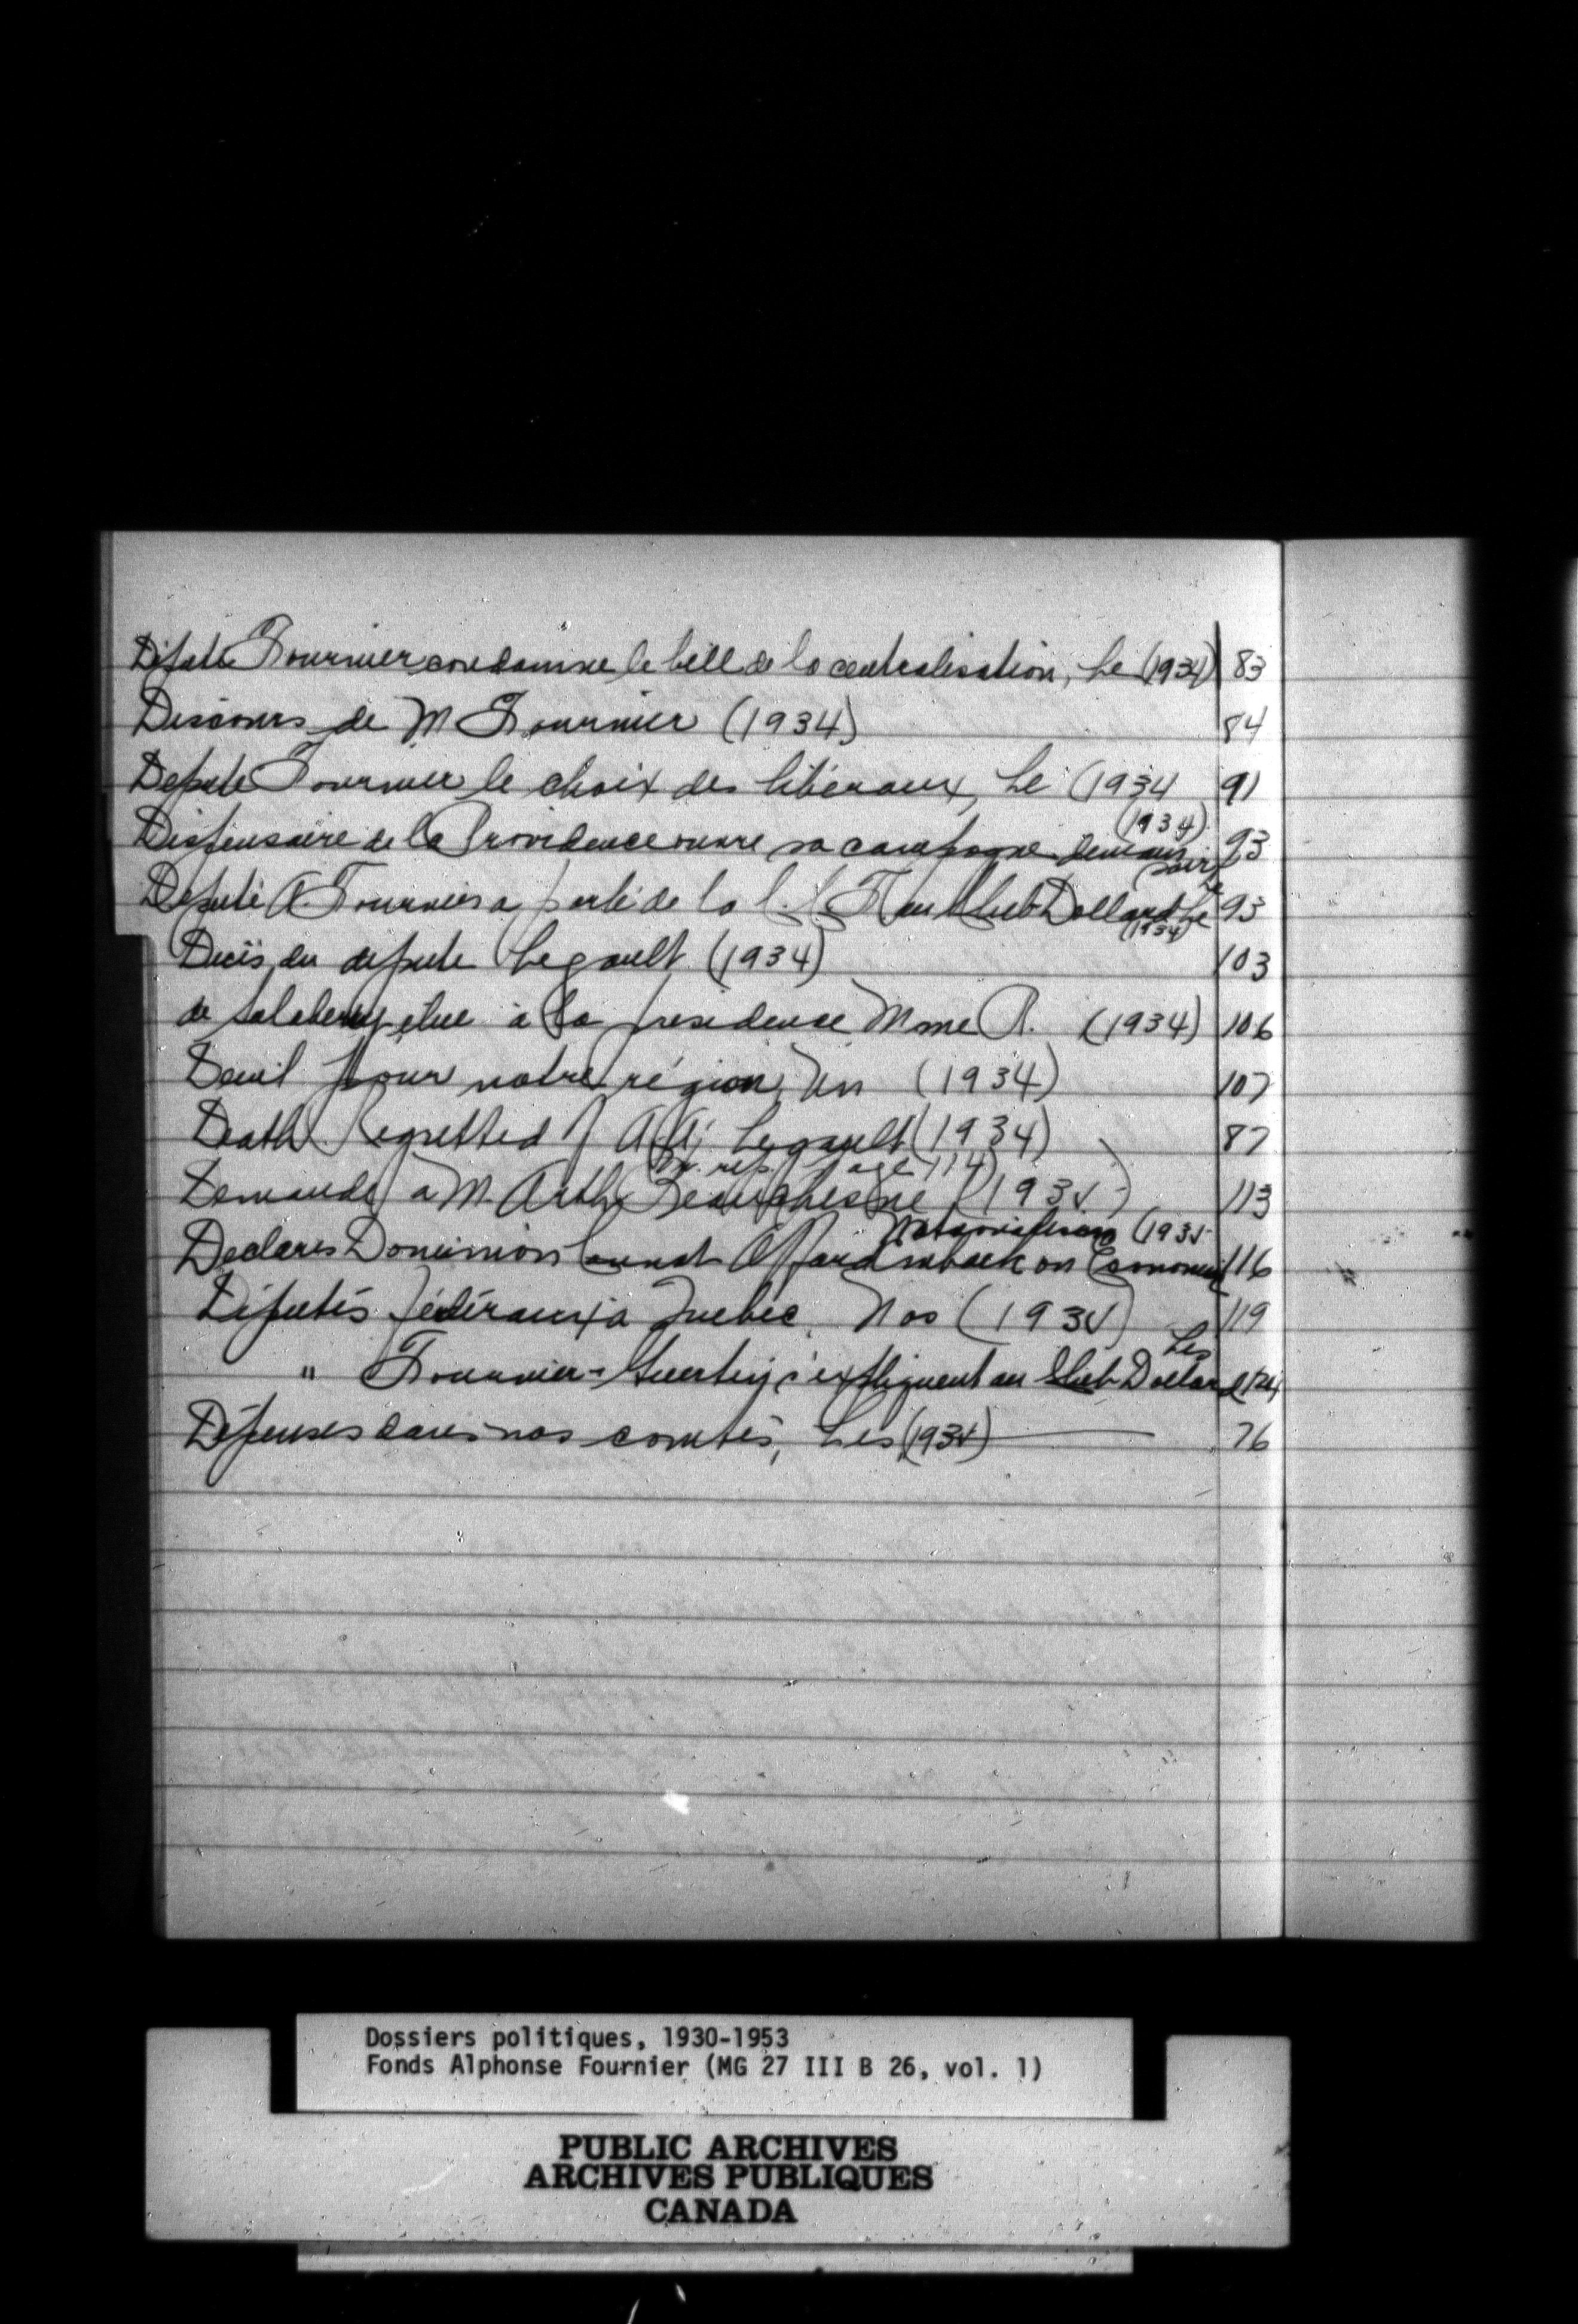 Député Fournier condamne le bill de la centralisation, Le (1934) 83
Discours de M Fournier (1934) 84
Depute Fournier le choix des libéraux, Le (1934 91
(1934)
Dispensaire de la Providence ouvre sa campagne demain 93
soir
Député A. Fournier a parlé de la au Club Dollard Le 93
(1934)
Décès du depute Legault (1934) 103
de Salaberry élue à la presidence Mme R. (1934) 106
Deuil pour notre région, Un (1934) 107
Death Regretted of A.A. Legault (1934) 87
rep. page 114)
Demande à M. Arth. Beauchesne (1935) 113
(1935
Declares Dominion Cannot Afford on Economic 116
Députés fédéraux à Quebec, Nos (1935) 119
Les
" Fournier - Guertin s'expliquent au Club Dollard 124
Dépenses dans nos comtés, Les (1935) 76
Dossiers politiques, 1930-1953
Fonds Alphonse Fournier (MG 27 III B 26, vol. 1)
PUBLIC ARCHIVES
ARCHIVES PUBLIQUES
CANADA